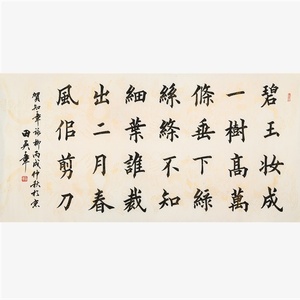 碧玉妆成
一樹髙萬
條垂下綠
絲絛不知
細葉誰裁
出二月春
風佀剪刀
賀知章詠柳丙戌仲秋於京
田英章